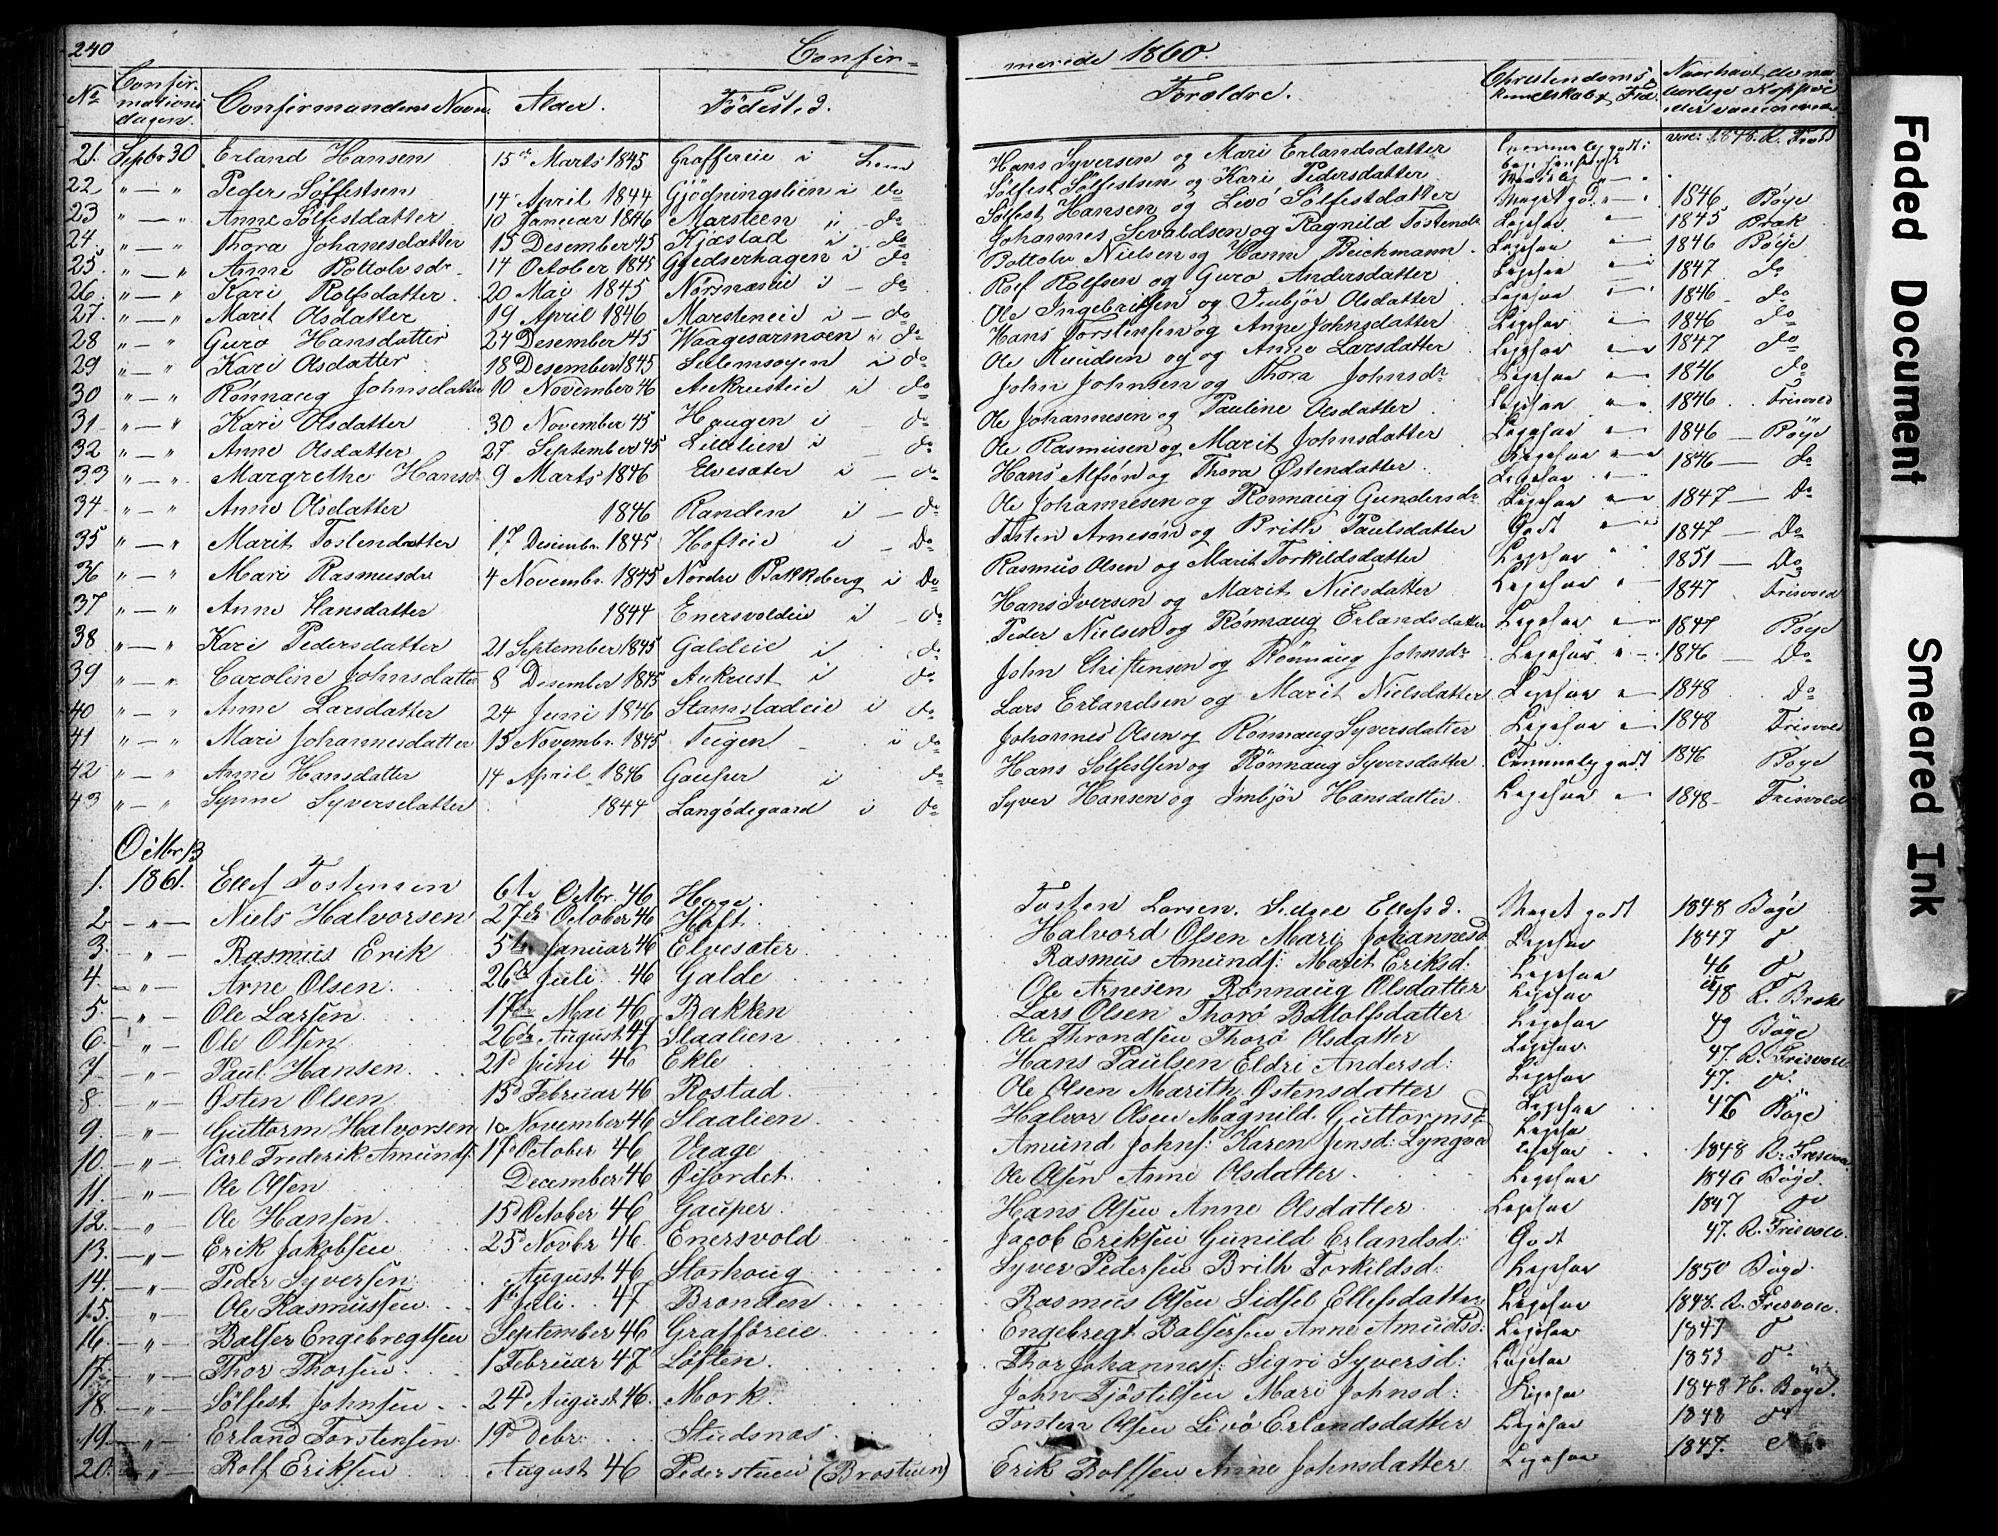 240
Confir-
merede 1860.
No
Confir-
mations
dagen.
Confirmandens Navn
Alder.
Födested.
Forældre.
Christendoms
kundskab & Flid.
Naar havt de na-
turlige Kopper
eller vaccineret
21. Septbr 30 Erland Hansen 15de Marts 1845 Graffereie i Lom Hans Syversen og Mari Erlandsdatter vac: 1848. R. Frisvold
22 " — " Peder Sølfestsen 14 April 1844 Gjödningslien i do Sølfest Sølfestsen og Kari Pedersdatter
23 " — " Anne Sølfestdatter 10 Januar 1846 Marsteen i do Sølfest Hansen og Livø Sølfestdatter Meget god 1846 Bøye
24 " — " Thora Johanesdatter 15 Desember 45 Kjæstad i do Johannes Sevaldsen og Ragnild Tostensdr Ligesaa 1845 Brak
25 " — " Anne Bottolvsdr 14 October 1845 Gjedserhagen i do Bottolv Nielsen og Hanne Beichmann Ligesaa 1846 Bøye
26 " — " Kari Rolfsdatter 20 Mai 1845 Nordnæseie i do Rolf Rolfsen og Guro Andersdatter Ligesaa 1847 do
27 " — " Marit Olsdatter 19 April 1846 Marsteneie i do Ole Ingebritsen og Imbjør Olsdatter Ligesaa 1846 do
28 " — " Guro Hansdatter 24 Desember 45 Waagesarmoen i do Hans Torstensen og Anne Johnsdatter Ligesaa 1846 do
29 " — " Kari Olsdatter 18 Desember 1845 Sulemsoyen i do Ole Knudsen og og Anne Larsdatter Ligesaa 1847 do
30 " — " Rønnaug Johnsdatter 10 November 46 Aukrusteie i do John Johnsen og Thora Johnsdr Ligesaa 1846 do
31 " — " Kari Olsdatter 30 November 45 Haugen i do Ole Johannesen og Pauline Olsdatter Ligesaa 1846 Frisvold
32 " — " Anne Olsdatter 27 September 45 Lillelien i do Ole Rasmusen og Marit Johnsdatter Ligesaa 1846 — Bøye
33 " — " Margrethe Hansdr 9 Marts 1846 Elvesæter i do Hans Alfsøn og Thora Østensdatter Ligesaa 1846 — do
34 " — " Anne Olsdatter 1846 Randen i do Ole Johannesen og Rønnaug Gundersdr Ligesaa 1847 — Do
35 " — " Marit Tostensdatter 17 Desembr. 1845 Hofteie i Do Tosten Arnesøn og Brith Paulsdatter Godt 1847 — Do
36 " — " Mari Rasmusdr 4 Novembr. 1845 Nordre Bakkeberg i Do Rasmus Olsen og Marit Torkildsdatter Ligesaa 1851 — Do
37 " — " Anne Hansdatter 1844 Enersvoldeie i do Hans Iversen og Marit Nielsdatter Ligesaa 1847 Frisvold
38 " — " Kari Pedersdatter 21 September 1845 Galdeie i do Peder Nielsen og Rønnaug Erlandsdatter Ligesaa 1847 Bøye
39 " — " Caroline Johnsdatter 8 Desember 1845 Aukrust i do John Christensen og Rønnaug Johnsdr Ligesaa 1846 — Do
40 " — " Anne Larsdatter 24 Juni 1846 Stamstadeie i do Lars Erlandsen og Marit Nielsdatter Ligesaa 1848 Do
41 " — " Mari Johannesdatter 15 Novembr. 1845 Teigen i do Johannes Olsen og Rønnaug Syversdatter Ligesaa 1848 Frisvold
42 " — " Anne Hansdatter 14 April 1846 Gauper i do Hans Sølfestsen og Rønnaug Syversdatter Temmelig godt 1846 Bøye
43 " — " Synne Syversdatter 1844 Langødegaard i do Syver Hansen og Imbjør Hansdatter Ligesaa 1848 Frisvold
Octbr 13
1. 1861. Ellef Tostensen 6te Octbr. 46 Hage Tosten Larsen. Sidsel Ellefsd. Meget godt 1848 Bøge
2 — " — Niels Halvorsen 27de October 46 Hoft Halvord Olsen Mari Johannesd Ligesaa 1847 do
3. " — Rasmus Erik 5te Januar 46 Elvesæter Rasmus Amunds: Marit Eriksd: Ligesaa 46 do
4. — " — Arne Olsen 26de Juli 46 Galde Ole Arnesen Rønnaug Olsdatter Ligesaa 48 L. Brake
5. — " — Ole Larsen 17de Mai 46 Bakken Lars Olsen Thorø Bottolfsdatter Ligesaa 49 Bøge
6. — " — Ole Olsen 26de August 47 Slaalien Ole Throndsen Thorø Olsdatter Ligesaa 47. R. Frisvold
7 — " — Paul Hansen 21d Juni 46 Ekle Hans Paulsen Eldri Andersd: Ligesaa 47. do
8 — " — Østen Olsen 15d Februar 46 Rostad Ole Olsen Marith Østensdatter Ligesaa 46 Bøge
9. — " — Guttorm Halvorsen 10 November 46 Slaalien Halvor Olsen Magnild Guttormsd Ligesaa
10. — " — Carl Frederik Amunds 17d October 46 Vaage Amund Johns: Karen Jensd: Lyngved Ligesaa 1848 R. Fresvold
11. — " — Ole Olsen December 46 Øifordet Ole Olsen Anne Olsdatter Ligesaa 1846 Bøge
12. — " — Ole Hansen 15d October 46 Gauper Hans Olsen Anne Olsdatter Ligesaa 1847 do
13. — " — Erik Jakobsen 25d Novbr 46 Enersvold Jacob Eriksen Gunild Erlandsd: Godt 47. R. Frisvold
14. — " — Peder Syversen August 46 Storhoug Syver Pedersen Brith Torkildsd: Ligesaa 1850 Bøge
15. " — Ole Rasmussen 1ste Juli 47 Bronden Rasmus Olsen Sidsel Ellefsdatter Ligesaa 1848. R. Fresvold
16. " — Balser Engebregtsen September 46 Grafföreie Engebregt Balsersen Anne Amudsd: Ligesaa 1847 do
17. — " — Thor Thorsen 1 Februar 47 Løften Thor Johanness: Sigrø Syversd: Ligesaa 1853 do
18. — " — Sølfest Johnsen 24d August 46 Mork John Tjöstelsen Mari Johnsd: Ligesaa 1848 H. Bøge
19. — " — Erland Torstensen 19d Debr. Studsnæs Torsten Olsen Livø Erlandsdatter Ligesaa 1848 do
20. " — Rolf Eriksen August 46 Pederstuen (Brostuen) Erik Rolfsen Anne Johnsdatter Ligesaa 1847.
Faded Document
Smeared Ink